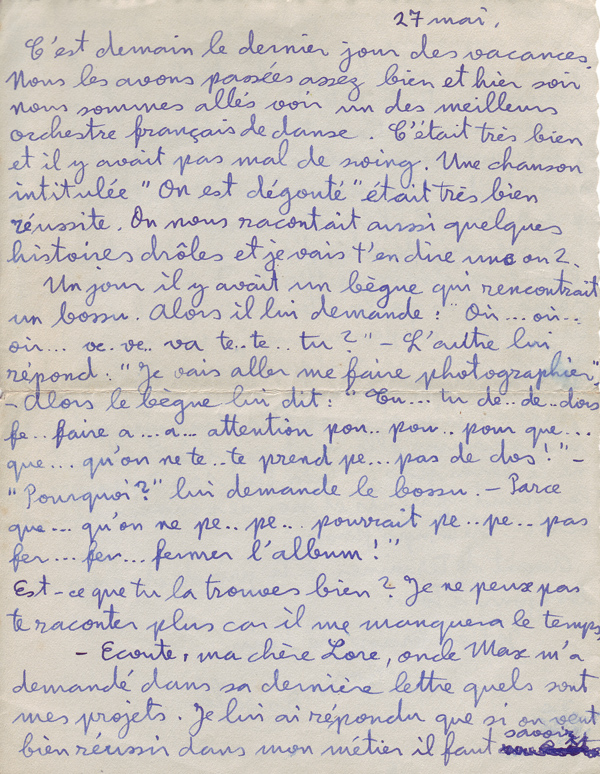 27 mai,
C'est demain le dernier jour des vacances.
Nous les avons passées assez bien et hier soir
nous sommes allés voir un des meilleurs
orchestre français de danse. C'était très bien
et il y avait pas mal de swing. Une chanson
intitulée "On est dégouté" était très bien
réussite. On nous racontait aussi quelques
histoires drôles et je vais t'en dire une on 2.
Un jour il y avait un bègue qui rencontrait
un bossu. Alors il lui demande: "Où... où..
où... ve.. ve.. va te.. te.. tu?" - L'autre lui
répond: "Je vais aller me faire photographier".
- Alors le bègue lui dit: "Tu... tu de.. de.. dois
fe.. faire a... a... attention pou.. pou.. pour que...
que... qu'on ne te.. te prend pe... pas de dos!" -
"Pourquoi?" lui demande le bossu. - Parce
que... qu'on ne pe.. pe... pouvrait pe.. pe... pas
fer... fer... fermer l'album!"
Est-ce que tu la trouves bien? Je ne peux pas
te raconter plus car il me manquera le temps
- Ecoute, ma chère Lore, oncle Max m'a
demandé dans sa dernière lettre quels sont
mes projets. Je lui ai répondu que si on veut
bien réussir dans mon métier il faut savoir